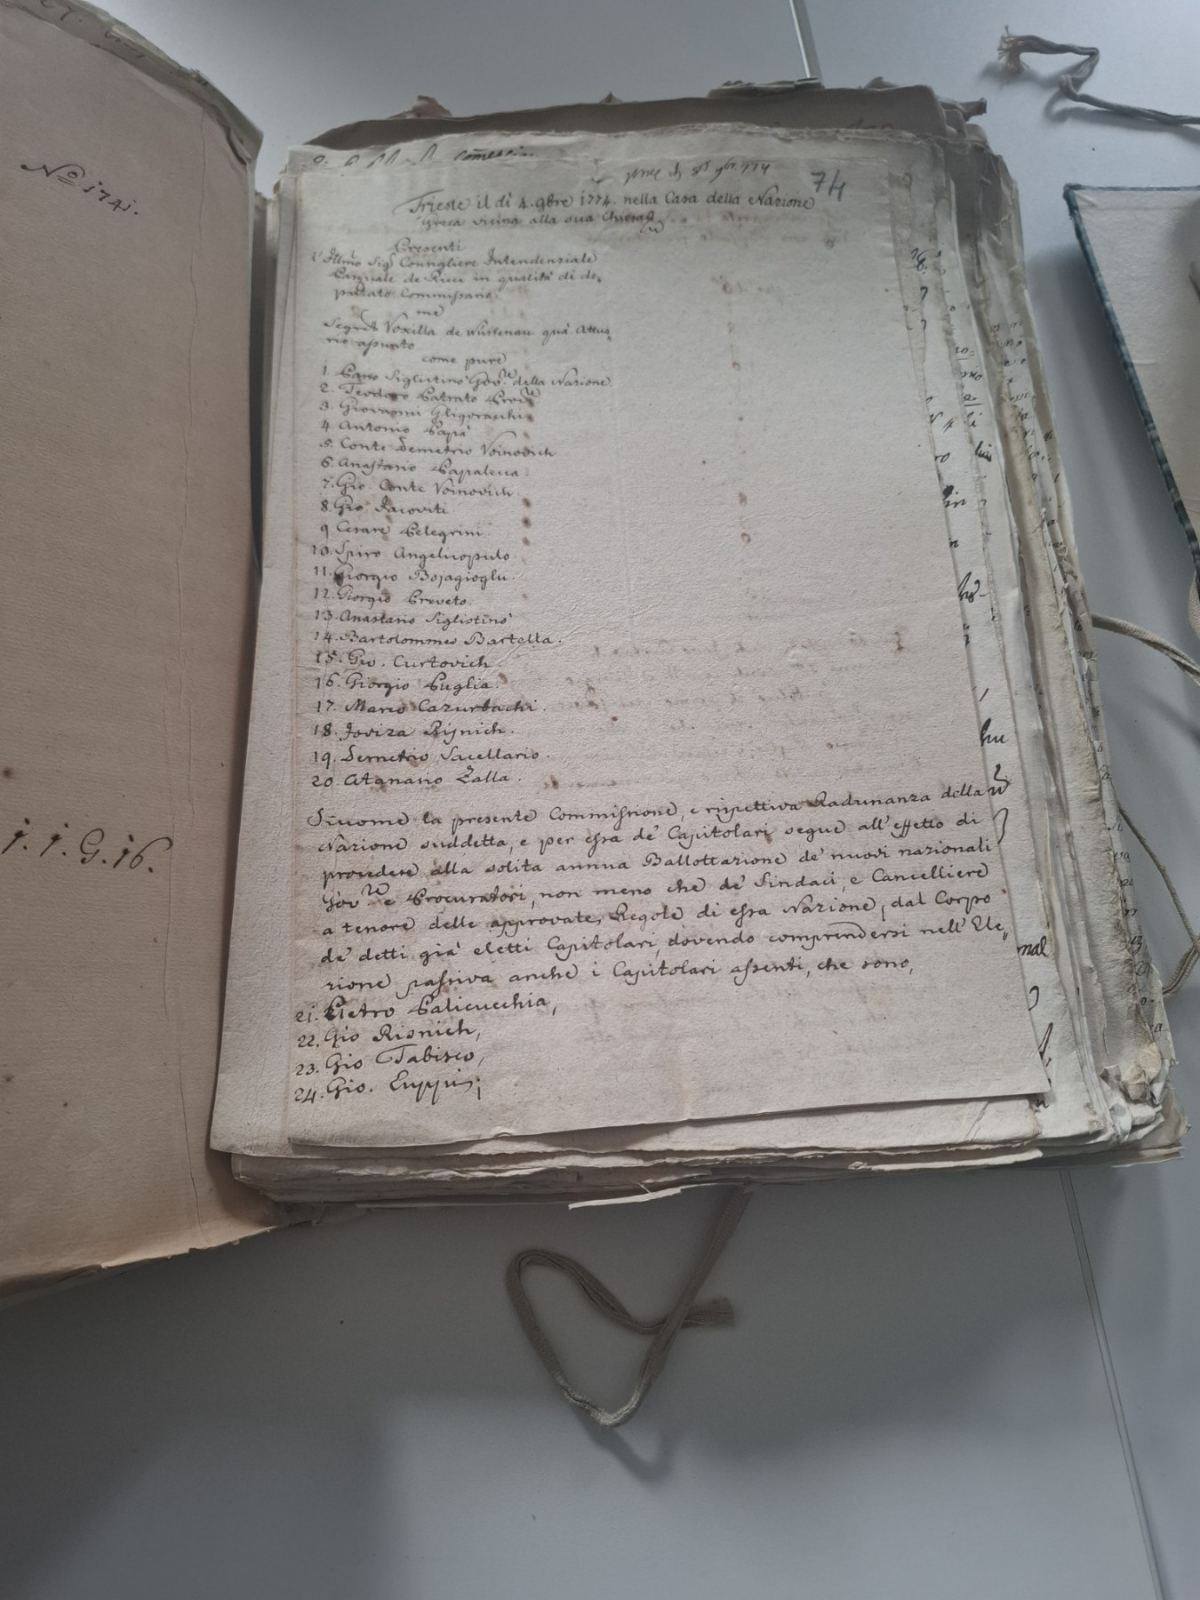 No 1741.
1. 1. G. 16.
74
Trieste il di 4. 9bre 1774. nella Casa della Nazione
Greca vicina alla sua Chiesa
Presenti
Illmo Sigr Consigliere Intendenziale
Pasquale de Ricci in qualità di de-
putato Commissario
Segret Voxilla de Wussenau qua Attua
rio assunto
come pure
1. Pano Sigliutino Govre della Nazione
2. Teodoro Patrato Procre
3. Giovanni Gligoraschi
4. Antonio Papà
5. Conte Demetrio Voinovich
6. Anastasio Papalecca
7. Gio Conte Voinovich
8. Gio Jacoviti
9 Cesare Pelegrini
10. Spiro Angelicopulo
11. Giorgio Bojagioglu.
12. Giorgio Preveto.
13. Anastasio Sigliotino
14. Bartolommeo Bartella.
15. Gio. Curtovich
16. Giorgio Puglia.
17. Marco Cazurbachi.
18. Joviza Risnich.
19. Demetrio Sacellario.
20. Atanasio Zalla.
Siccome la presente Commissione, e rispettiva Radunanza della
Nazione suddetta, e per essa de' Capitolari segue all'effetto di
procedere alla solita annua Ballottazione de' nuovi nazionali
Govri e Procuratori, non meno che de' Sindaci, e Cancelliere
a tenore delle approvate Regole di essa Nazione, dal Corpo
de' detti già eletti Capitolari, dovendo comprendersi nell'Ele-
zione passiva anche i Capitolari assenti, che sono,
21. Pietro Palicucchia,
22. Gio Risnich,
23. Gio Tabisco,
24. Gio.